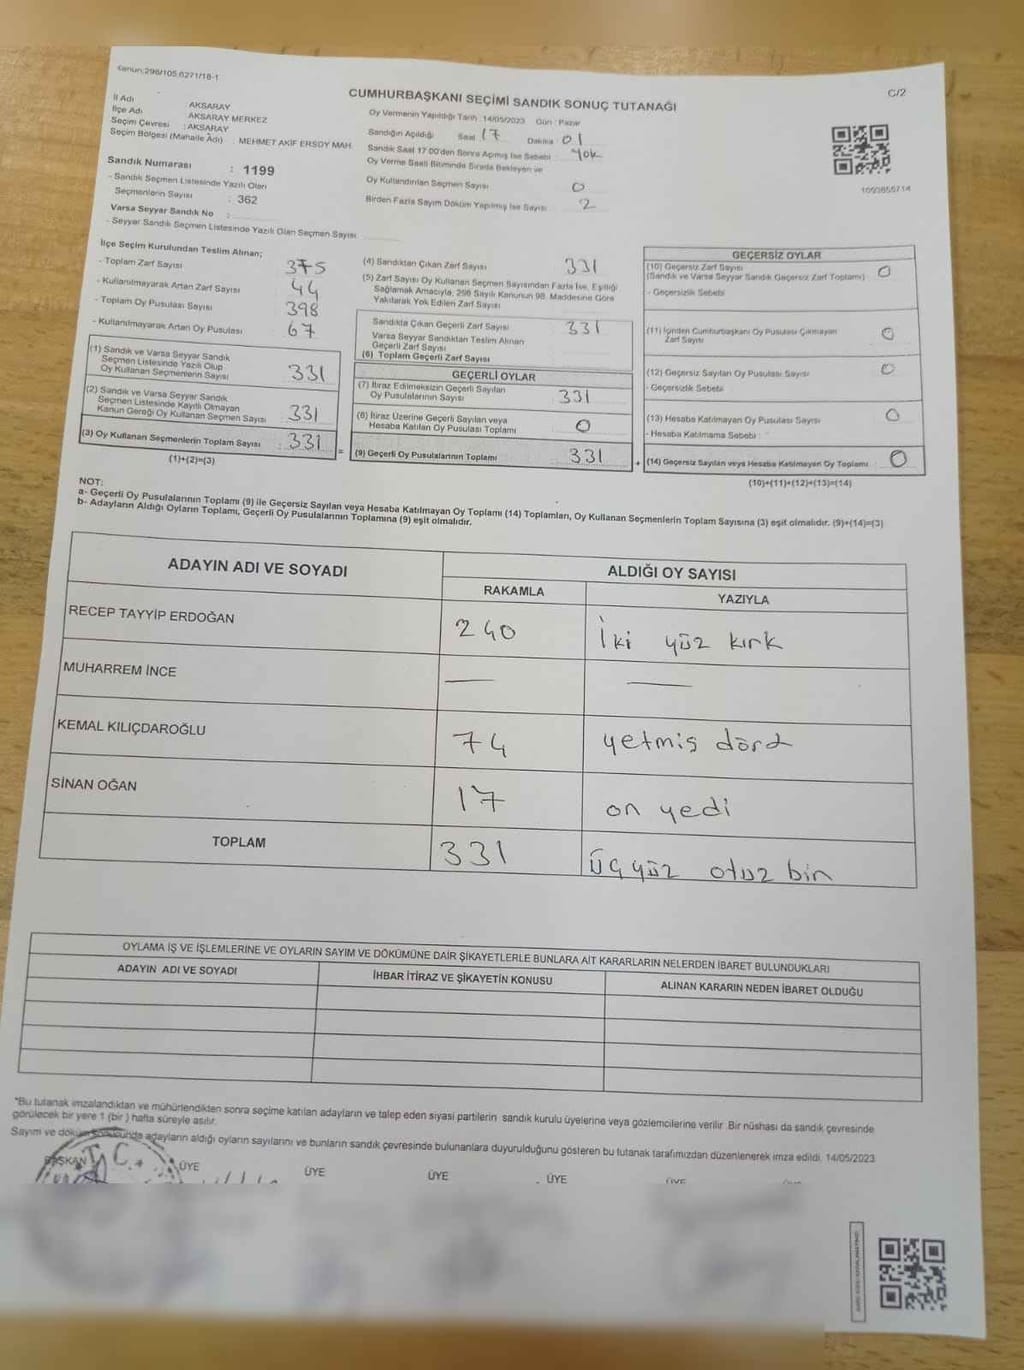 Kanun:298/105,6271/18-1
C/2
CUMHURBAŞKANI SEÇİMİ SANDIK SONUÇ TUTANAĞI
İl Adı AKSARAY
İlçe Adı AKSARAY MERKEZ
Seçim Çevresi : AKSARAY
Seçim Bölgesi (Mahalle Adı) : MEHMET AKİF ERSOY MAH.
Sandık Numarası : 1199
- Sandık Seçmen Listesinde Yazılı Olan
Seçmenlerin Sayısı : 362
Varsa Seyyar Sandık No :
- Seyyar Sandık Seçmen Listesinde Yazılı Olan Seçmen Sayısı
Oy Vermenin Yapıldığı Tarih :14/05/2023 Gün : Pazar
Sandığın Açıldığı Saat 17 Dakika 01
Sandık Saat 17:00'den Sonra Açmış İse Sebebi : Yok
Oy Verme Saati Bitiminde Sırada Bekleyen ve
Oy Kullandırılan Seçmen Sayısı 0
Birden Fazla Sayım Döküm Yapılmış İse Sayısı 2
İlçe Seçim Kurulundan Teslim Alınan;
- Toplam Zarf Sayısı 375
- Kullanılmayarak Artan Zarf Sayısı 44
- Toplam Oy Pusulası Sayısı 398
- Kullanılmayarak Artan Oy Pusulası 67
(1) Sandık ve Varsa Seyyar Sandık
Seçmen Listesinde Yazılı Olup
Oy Kullanan Seçmenlerin Sayısı 331
(2) Sandık ve Varsa Seyyar Sandık
Seçmen Listesinde Kayıtlı Olmayan
Kanun Gereği Oy Kullanan Seçmen Sayısı 331
(3) Oy Kullanan Seçmenlerin Toplam Sayısı 331 =
(1)+(2)=(3)
(4) Sandıktan Çıkan Zarf Sayısı 331
(5) Zarf Sayısı Oy Kullanan Seçmen Sayısından Fazla İse, Eşitliği
Sağlamak Amacıyla, 298 Sayılı Kanunun 98. Maddesine Göre
Yakılarak Yok Edilen Zarf Sayısı
Sandıkta Çıkan Geçerli Zarf Sayısı 331
Varsa Seyyar Sandıktan Teslim Alınan
Geçerli Zarf Sayısı
(6) Toplam Geçerli Zarf Sayısı
GEÇERLİ OYLAR
(7) İtiraz Edilmeksizin Geçerli Sayılan
Oy Pusulalarının Sayısı 331
(8) İtiraz Üzerine Geçerli Sayılan veya
Hesaba Katılan Oy Pusulası Toplamı 0
(9) Geçerli Oy Pusulalarının Toplamı 331 +
GEÇERSİZ OYLAR
(10) Geçersiz Zarf Sayısı 0
(Sandık ve Varsa Seyyar Sandık Geçersiz Zarf Toplamı)
- Geçersizlik Sebebi
(11) İçinden Cumhurbaşkanı Oy Pusulası Çıkmayan
Zarf Sayısı 0
(12) Geçersiz Sayılan Oy Pusulası Sayısı 0
- Geçersizlik Sebebi
(13) Hesaba Katılmayan Oy Pusulası Sayısı 0
- Hesaba Katılmama Sebebi :
(14) Geçersiz Sayılan veya Hesaba Katılmayan Oy Toplamı 0
(10)+(11)+(12)+(13)=(14)
NOT:
a- Geçerli Oy Pusulalarının Toplamı (9) ile Geçersiz Sayılan veya Hesaba Katılmayan Oy Toplamı (14) Toplamları, Oy Kullanan Seçmenlerin Toplam Sayısına (3) eşit olmalıdır. (9)+(14)=(3)
b- Adayların Aldığı Oyların Toplamı, Geçerli Oy Pusulalarının Toplamına (9) eşit olmalıdır.
ADAYIN ADI VE SOYADI ALDIĞI OY SAYISI
RAKAMLA YAZIYLA
RECEP TAYYİP ERDOĞAN 240 İki yüz kırk
MUHARREM İNCE — —
KEMAL KILIÇDAROĞLU 74 yetmiş dört
SİNAN OĞAN 17 on yedi
TOPLAM 331 Üçyüz otuz bin
OYLAMA İŞ VE İŞLEMLERİNE VE OYLARIN SAYIM VE DÖKÜMÜNE DAİR ŞİKAYETLERLE BUNLARA AİT KARARLARIN NELERDEN İBARET BULUNDUKLARI
ADAYIN ADI VE SOYADI İHBAR İTİRAZ VE ŞİKAYETİN KONUSU ALINAN KARARIN NEDEN İBARET OLDUĞU
"Bu tutanak imzalandıktan ve mühürlendikten sonra seçime katılan adayların ve talep eden siyasi partilerin sandık kurulu üyelerine veya gözlemcilerine verilir. Bir nüshası da sandık çevresinde
görülecek bir yere 1 (bir) hafta süreyle asılır.
Sayım ve döküm sonucunda adayların aldığı oyların sayılarını ve bunların sandık çevresinde bulunanlara duyurulduğunu gösteren bu tutanak tarafımızdan düzenlenerek imza edildi. 14/05/2023
BAŞKAN ÜYE ÜYE ÜYE ÜYE ÜYE
T.C.